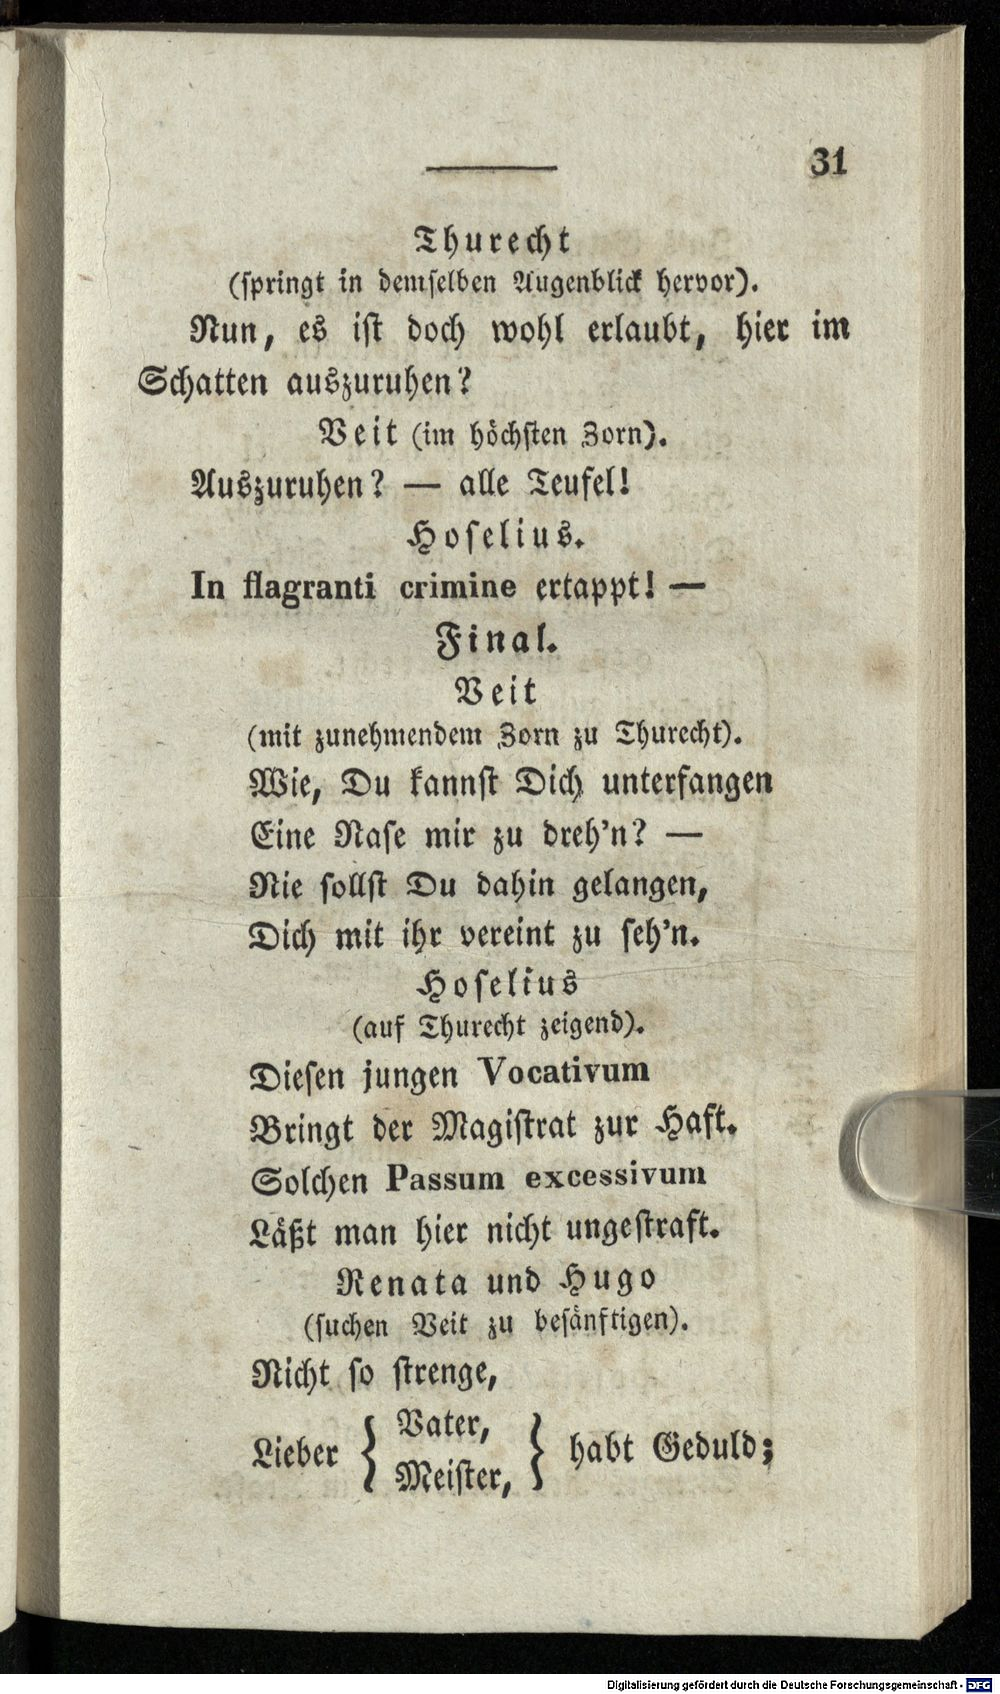 31
Thurecht
(springt in demselben Augenblick hervor).
Nun, es ist doch wohl erlaubt, hier im
Schatten auszuruhen?
Veit (im höchsten Zorn).
Auszuruhen? — alle Teufel!
Hoselius.
In flagranti crimine ertappt! —
Final.
Veit
(mit zunehmendem Zorn zu Thurecht).
Wie, Du kannst Dich unterfangen
Eine Nase mir zu dreh'n? —
Nie sollst Du dahin gelangen,
Dich mit ihr vereint zu seh'n.
Hoselius
(auf Thurecht zeigend).
Diesen jungen Vocativum
Bringt der Magistrat zur Haft.
Solchen Passum excessivum
Läßt man hier nicht ungestraft.
Renata und Hugo
(suchen Veit zu besänftigen).
Nicht so strenge,
Lieber { Vater, Meister, } habt Geduld;
Digitalisierung gefördert durch die Deutsche Forschungsgemeinschaft - DFG